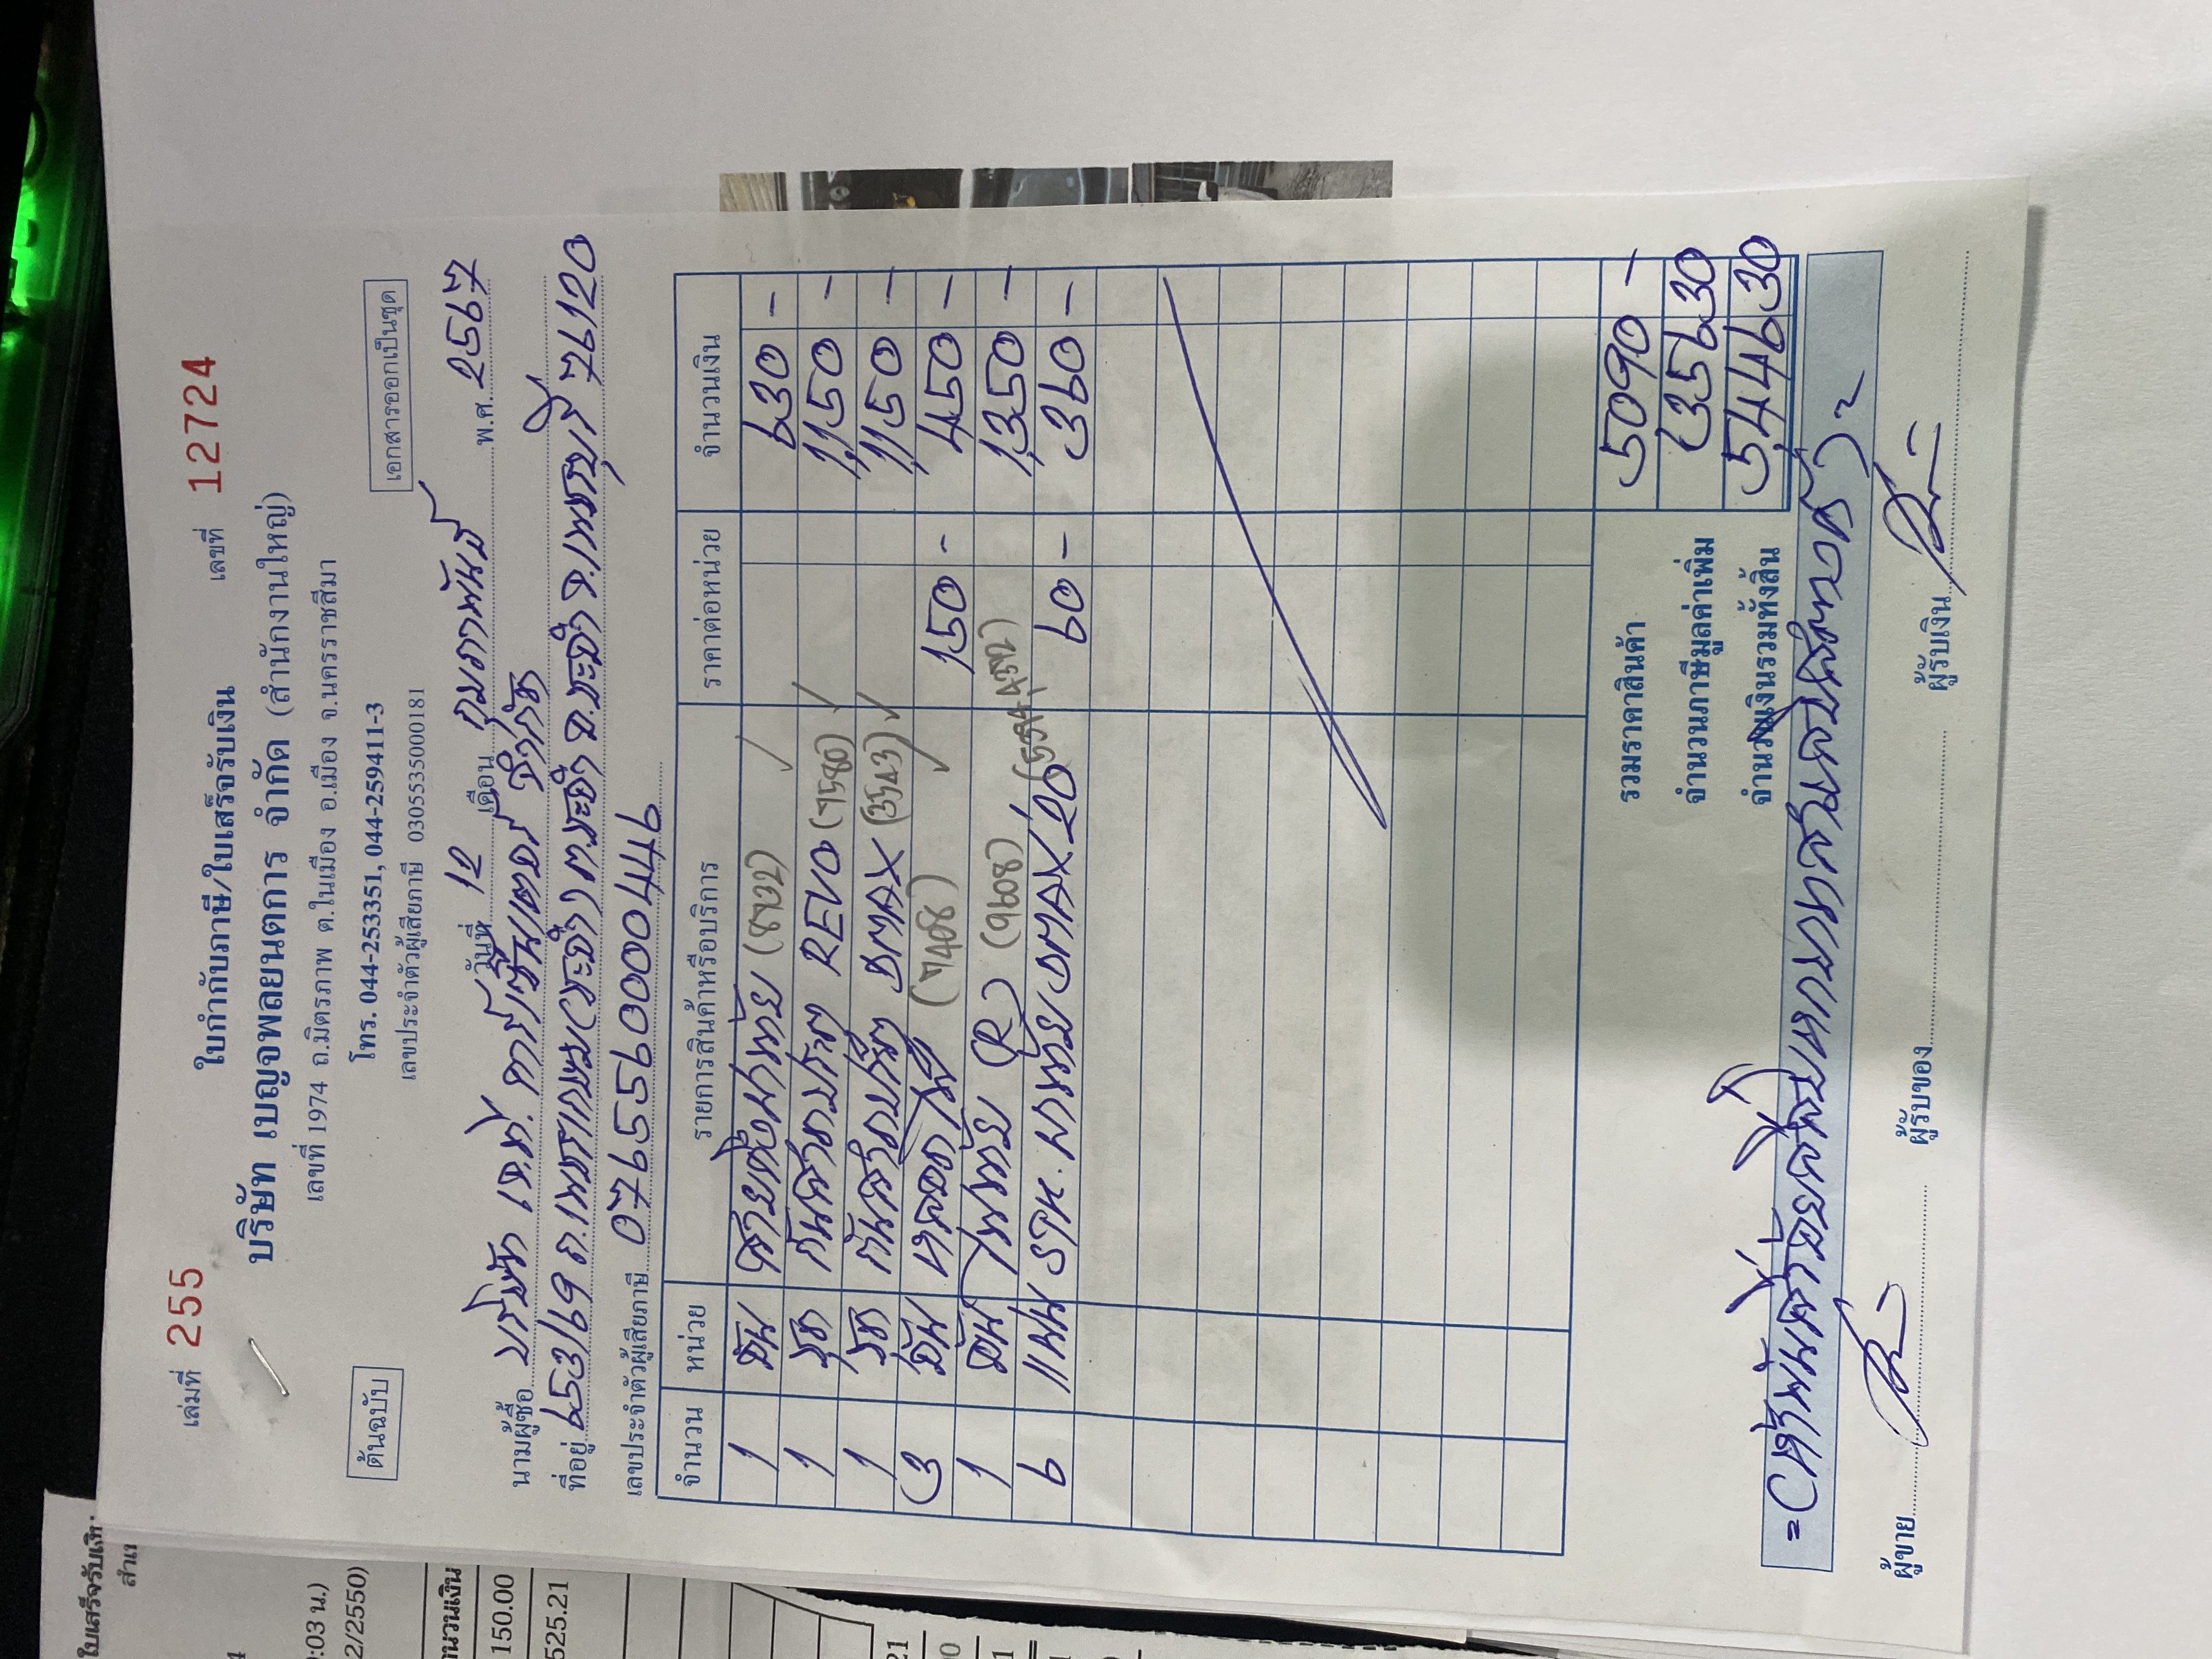 เล่มที่ 255
ใบกำกับภาษี/ใบเสร็จรับเงิน
เลขที่ 12724
บริษัท เบญจพลยนตการ จำกัด (สำนักงานใหญ่)
เลขที่ 1974 ถ.มิตรภาพ ต.ในเมือง อ.เมือง จ.นครราชสีมา
โทร. 044-253351, 044-259411-3
ต้นฉบับ
เอกสารออกเป็นชุด
เลขประจำตัวผู้เสียภาษี 0305535000181
วันที่ 12 เดือน กุมภาพันธ์ พ.ศ. 2567
นามผู้ซื้อ บริษัท เจ.พี.
ที่อยู่ 653/69 ถ.เพชรเกษม ต.ชะอำ อ.ชะอำ จ.เพชรบุรี 76120
เลขประจำตัวผู้เสียภาษี 0765590000449
จำนวน หน่วย รายการสินค้าหรือบริการ ราคาต่อหน่วย จำนวนเงิน
1 อัน (8732) 630 -
1 ชุด REVO (7580) 1,150 -
1 ชุด DMAX (3543) 1,150 -
3 อัน หลอด (7408) 150 - 450 -
1 อัน ไฟท้าย (9608) 1,350 -
6 แผ่น STK. DMAX'20 60 - 360 -
รวมราคาสินค้า 5090 -
จำนวนภาษีมูลค่าเพิ่ม 356 30
จำนวนเงินรวมทั้งสิ้น 5,446 30
=(ห้าพันสี่ร้อยสี่สิบหกบาทสามสิบสตางค์)=
ผู้ขาย ผู้รับของ ผู้รับเงิน
150.00
525.21